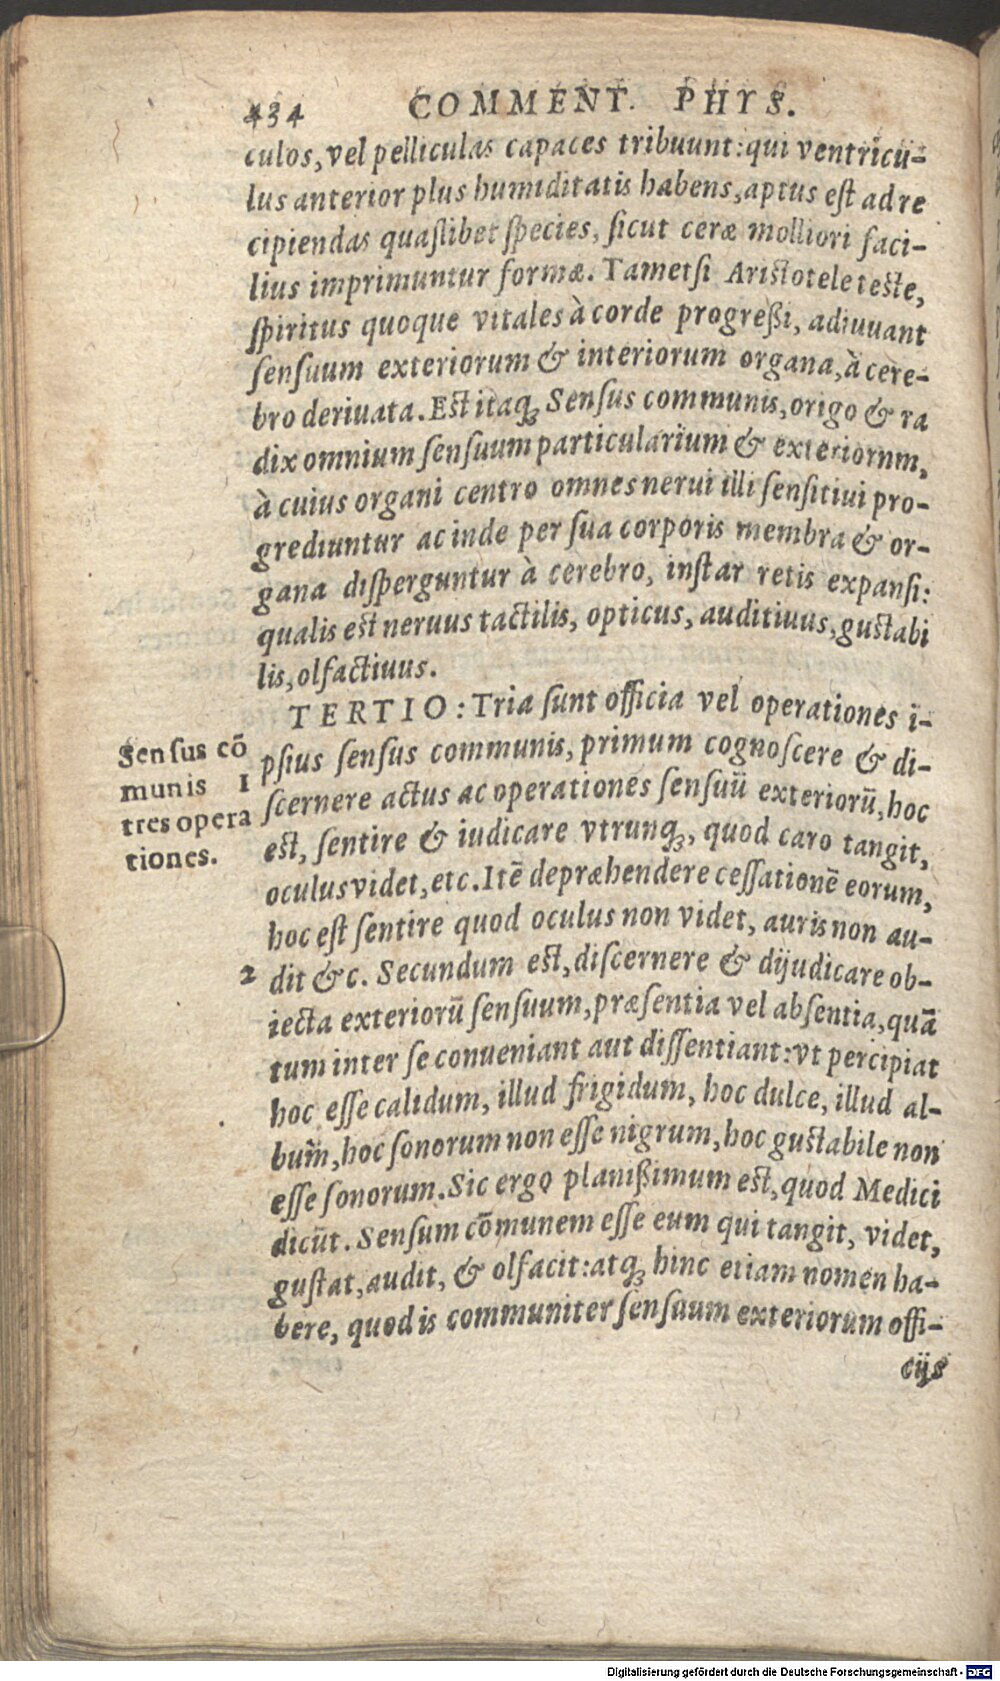 434 COMMENT. PHYS.
culos, vel pelliculas capaces tribuunt: qui ventricu-
lus anterior plus humiditatis habens, aptus est ad re
cipiendas quaslibet species, sicut ceræ molliori faci-
lius imprimuntur formæ. Tametsi Aristotele teste,
spiritus quoque vitales à corde progreßi, adiuuant
sensuum exteriorum & interiorum organa, à cere-
bro deriuata. Est itaq; Sensus communis, origo & ra
dix omnium sensuum particularium & exteriornm,
à cuius organi centro omnes nerui illi sensitiui pro-
grediuntur ac inde per sua corporis membra & or-
gana disperguntur à cerebro, instar retis expansi:
qualis est neruus tactilis, opticus, auditiuus, gustabi
lis, olfactiuus.
TERTIO: Tria sunt officia vel operationes i-
psius sensus communis, primum cognoscere & di-
scernere actus ac operationes sensuũ exteriorũ, hoc
est, sentire & iudicare vtrunq;, quod caro tangit,
oculus videt, etc. Itẽ depræhendere cessationẽ eorum,
hoc est sentire quod oculus non videt, auris non au-
dit &c. Secundum est, discernere & dijudicare ob-
iecta exteriorũ sensuum, præsentia vel absentia, quã
tum inter se conueniant aut dissentiant: vt percipiat
hoc esse calidum, illud frigidum, hoc dulce, illud al-
bum, hoc sonorum non esse nigrum, hoc gustabile non
esse sonorum. Sic ergo planißimum est, quod Medici
dicũt. Sensum cõmunem esse eum qui tangit, videt,
gustat, audit, & olfacit: atq; hinc etiam nomen ha-
bere, quod is communiter sensuum exteriorum offi-
cijs
Sensus cõ
munis 1
tres opera
tiones.
2
Digitalisierung gefördert durch die Deutsche Forschungsgemeinschaft - DFG